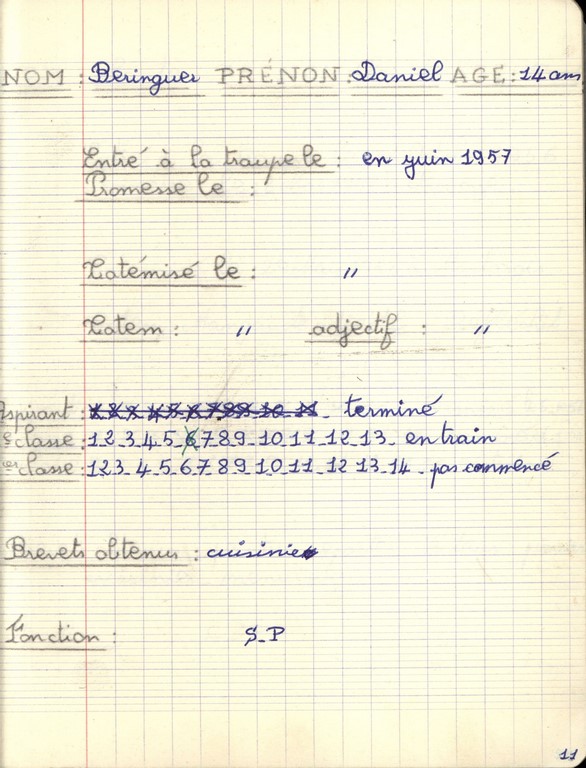 NOM : Beringuer PRÉNON : Daniel AGE : 14 ans
Entré à la troupe le : en juin 1957
Promesse le :
Totémisé le : "
Totem : " adjectif : "
Aspirant : 1 2 3 4 5 6 7 8 9 10 11 - terminé
classe : 1 2 3 4 5 6 7 8 9 10 11 12 13 - en train
classe : 1 2 3 4 5 6 7 8 9 10 11 12 13 14 - pas commencé
Brevets obtenus : cuisinier
Fonction : S.P
11